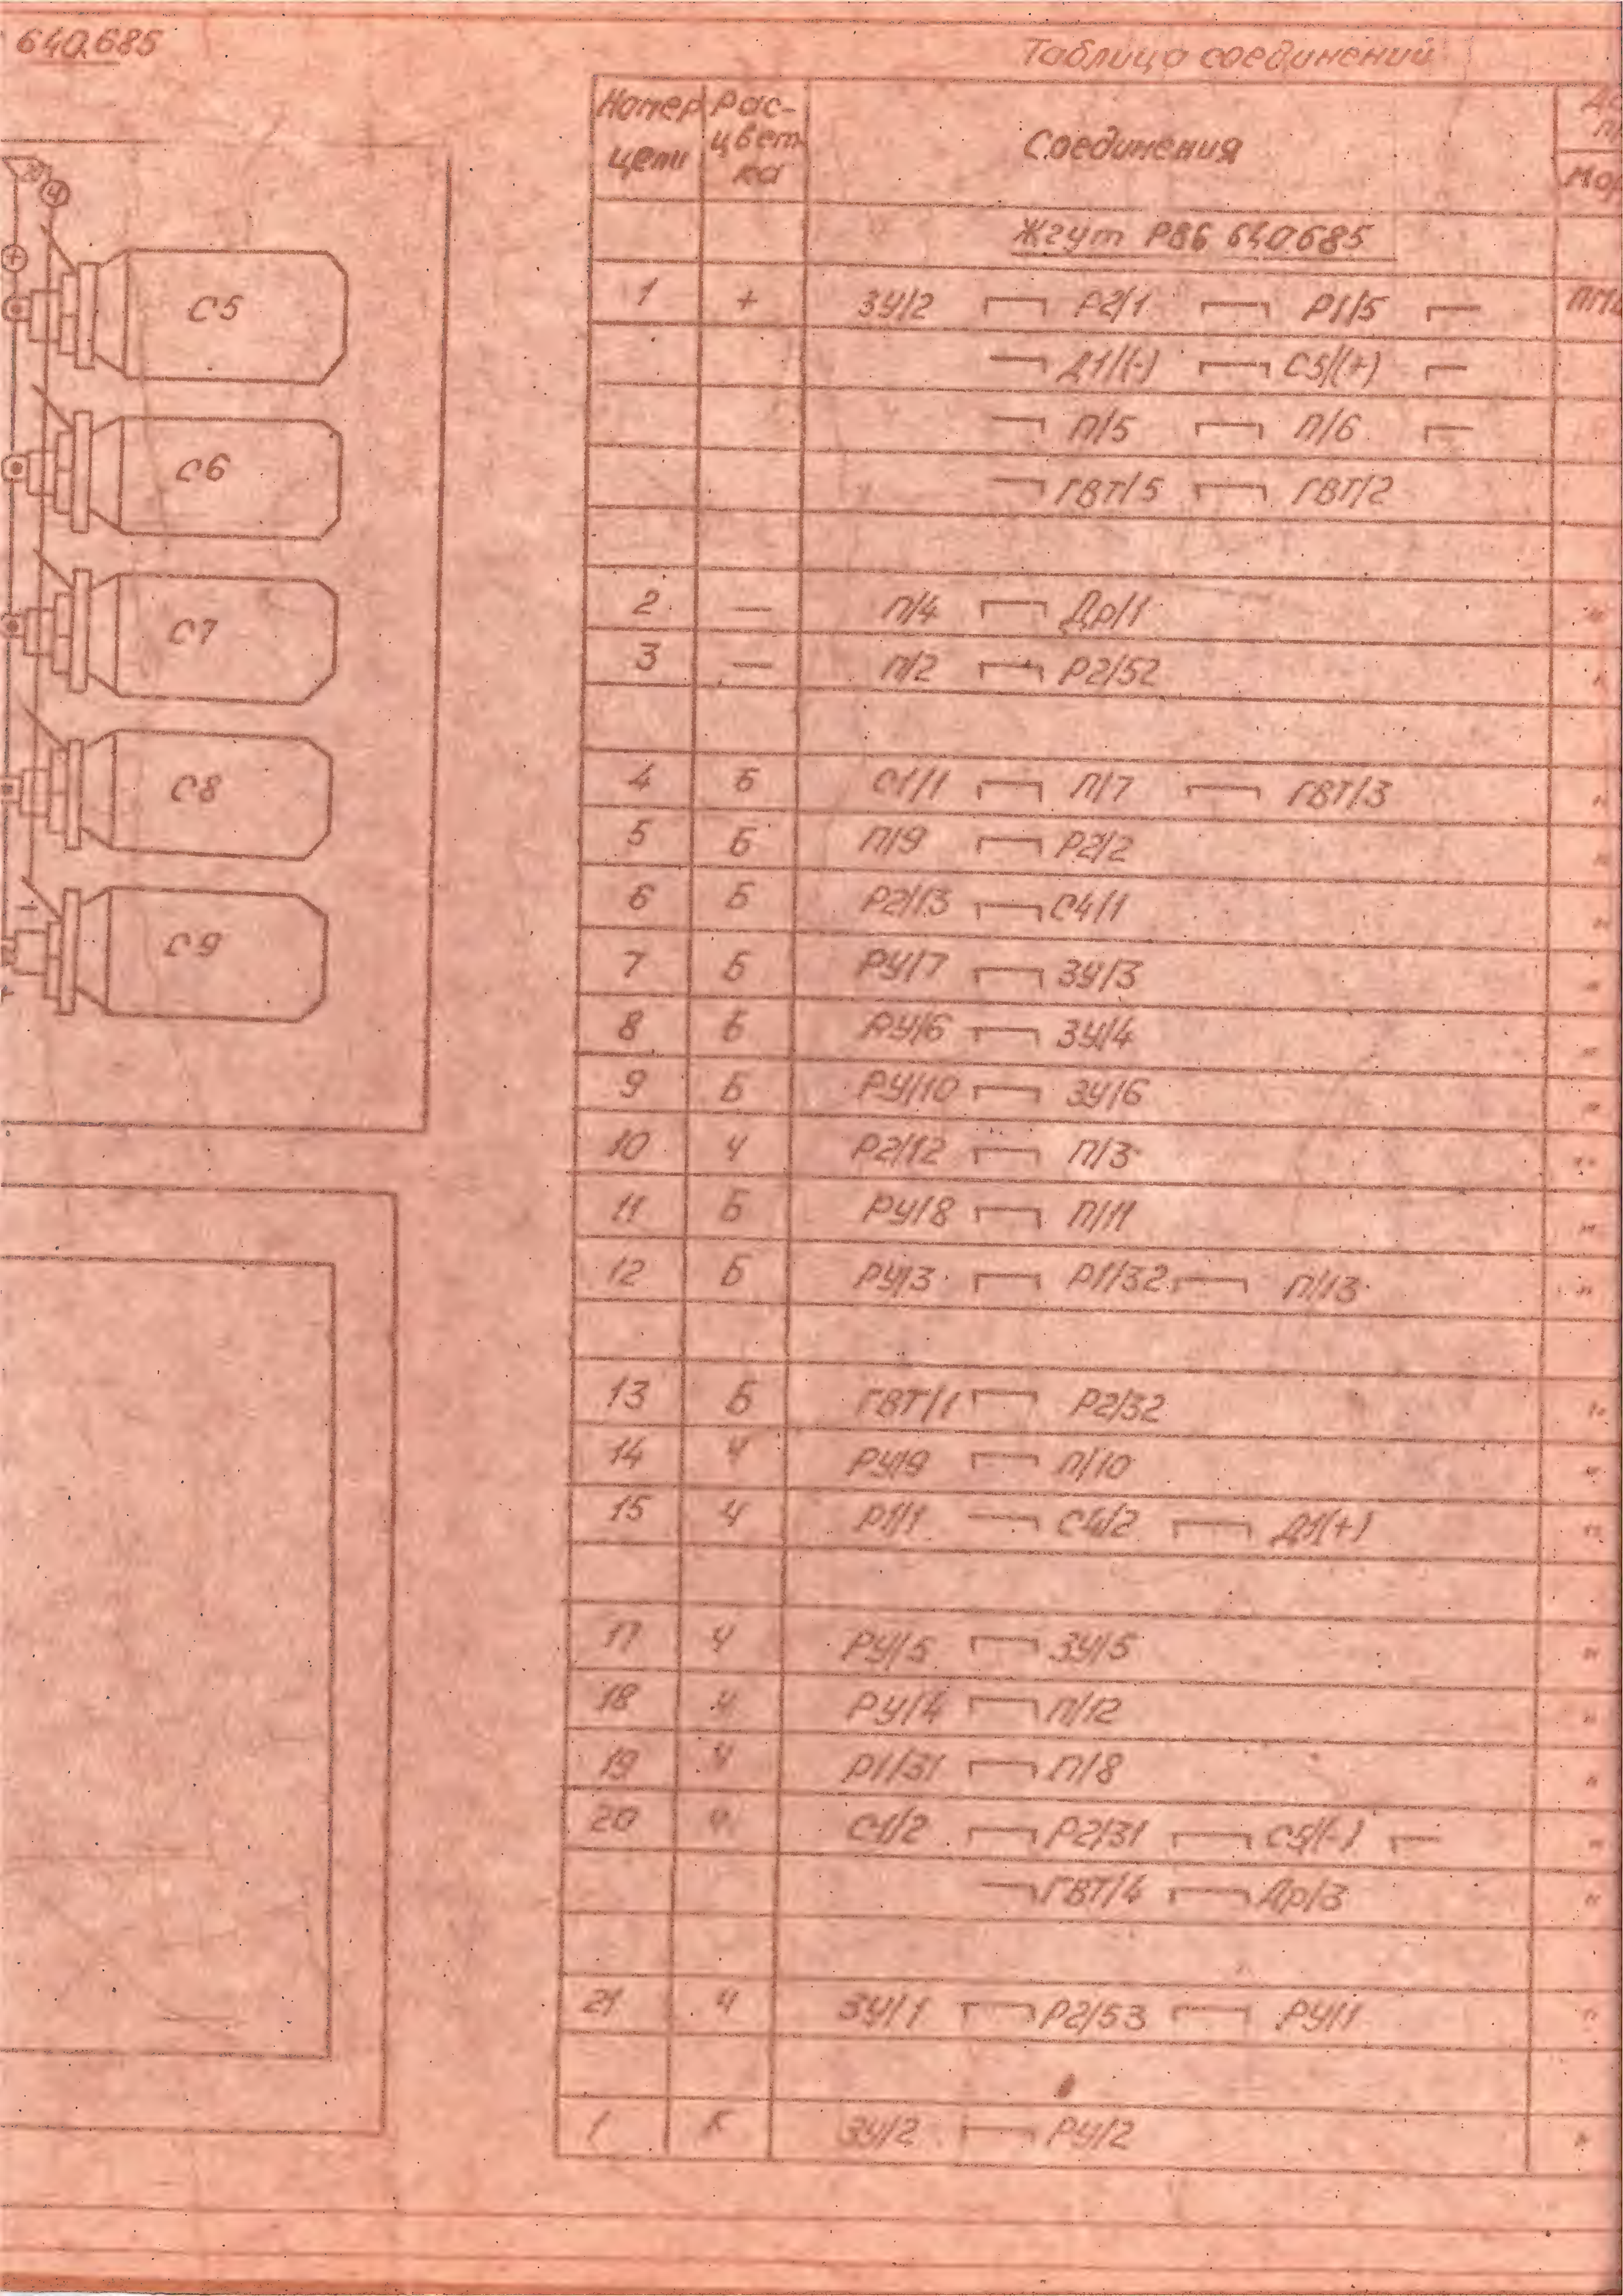 640.685
Таблица соединений
Номер цепи Рас-цвет-ка Соединения
Жгут РВ6 640.685
1 + ЗУ/2 Р2/1 Р1/5
Д1/(-) С5/(+)
П/5 П/6
ГВТ/5 ГВТ/2
2 — П/4 Др/1
3 — П/2 Р2/52
4 Б С1/1 П/7 ГВТ/3
5 Б П/9 Р2/2
6 Б Р2/13 С4/1
7 Б РУ/7 ЗУ/3
8 Б РУ/6 ЗУ/4
9 Б РУ/10 ЗУ/6
10 Ч Р2/12 П/3
11 Б РУ/8 П/11
12 Б РУ/3 Р1/32 П/13
13 Б ГВТ/1 Р2/32
14 Ч РУ/9 П/10
15 Ч Р1/1 С4/2 Д1(+)
17 Ч РУ/5 ЗУ/5
18 Ч РУ/4 П/12
19 Ч Р1/31 П/8
20 Ч С1/2 Р2/31 С5/(-)
ГВТ/4 Др/3
21 Ч ЗУ/1 Р2/53 РУ/1
1 К ЗУ/2 РУ/2
20
Ч
+
С5
С6
С7
С8
С9